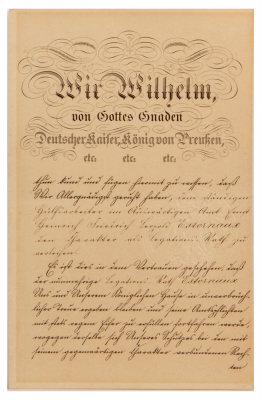 Wir Wilhelm,
von Gottes Gnaden
Deutscher Kaiser, König von Preußen,
etc. etc. etc.
thun kund und fügen hiermit zu wissen, daß
Wir Allergnädigst geruht haben, dem ständigen
Hülfsarbeiter im Auswärtigen Amt Ernst
Heinrich Friedrich Leopold Esternaux
den Charakter als Legations-Rath zu
verleihen.
Es ist dies in dem Vertrauen geschehen, daß
der nunmehrige Legations-Rath Esternaux
Uns und Unserem Königlichen Hause in unverbrüch-
licher Treue ergeben bleiben und seine Amtspflichten
mit stets regem Eifer zu erfüllen fortfahren werde,
wogegen derselbe sich Unseres Schutzes bei den mit
seinem gegenwärtigen Charakter verbundenen Rech-
ten